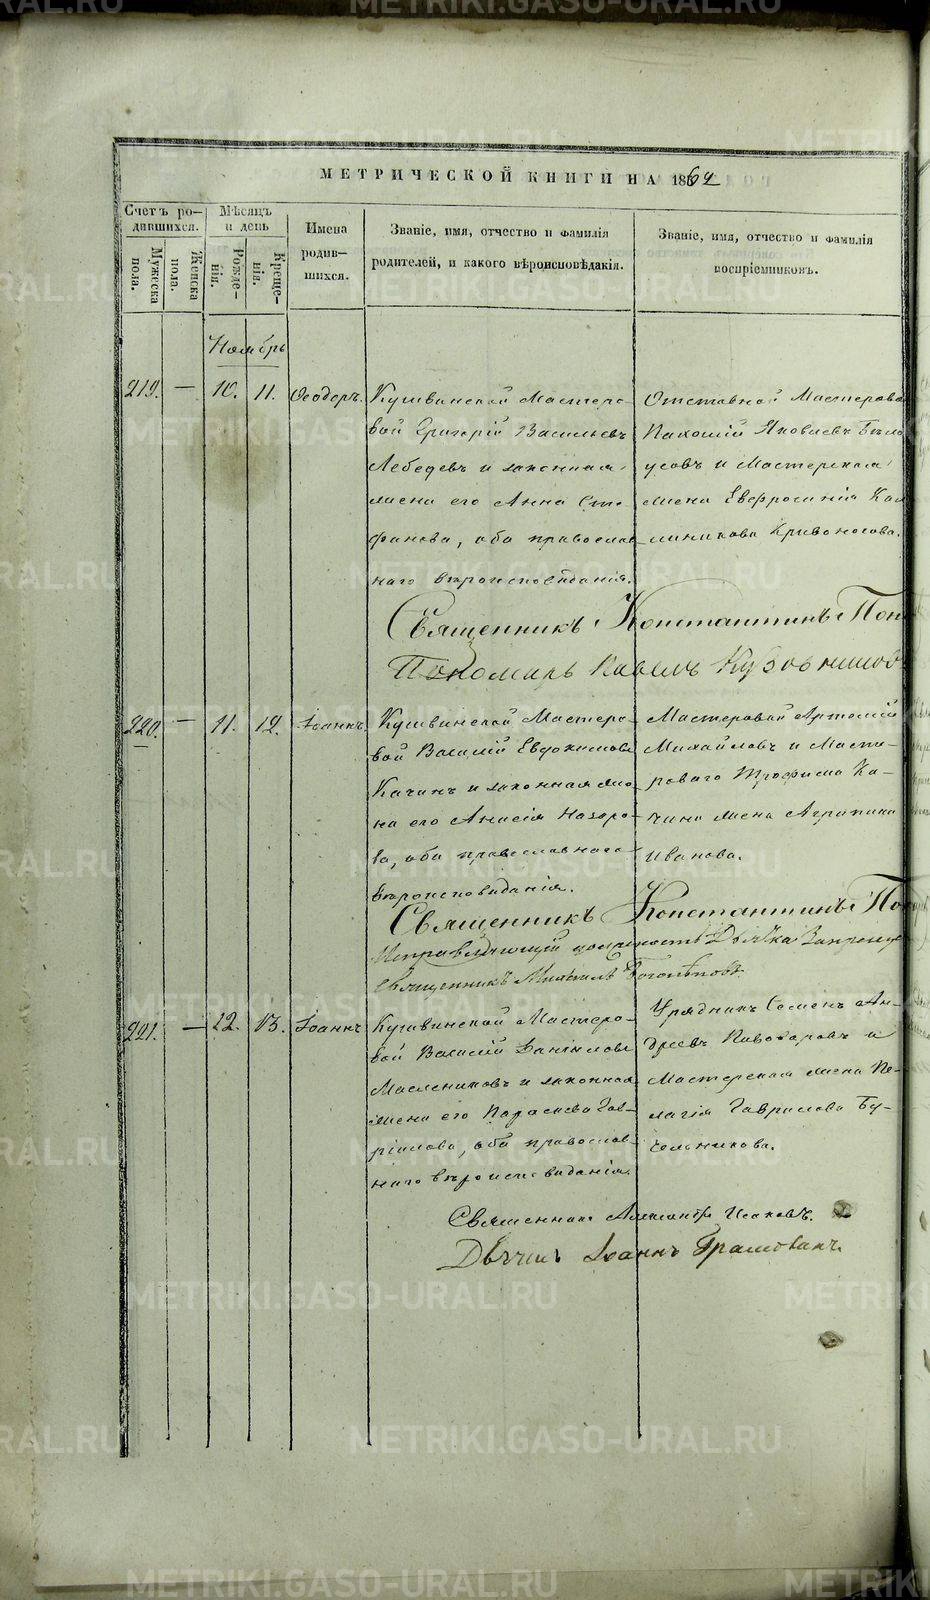 МЕТРИЧЕСКОЙ КНИГИ НА 1862
Счетъ ро-
дившихся.
Мѣсяцъ
и день
Имена
родив-
шихся.
Званіе, имя, отчество и фамилія
родителей, и какого вѣроисповѣданія.
Званіе, имя, отчество и фамилія
воспріемниковъ.
Мужеска
пола.
Женска
пола.
Рожде-
нія.
Креще-
нія.
Ноябрь
219. — 10. 11. Ѳеодоръ. Кушвинской Мастеро-
вой Григорій Васильевъ
Лебедевъ и законная
жена его Анна Сте
фанова, оба православ
наго вѣроисповѣданія.
Отставной Мастерово
Пахомій Яковлевъ Бѣло
усовъ и Мастерская
жена Евфросинія Кал
линикова Кривоносова.
Священникъ Константинъ Поп
Пономарь Павелъ Кузовников
220. — 11. 12. Іоаннъ. Кушвинской Мастеро-
вой Василій Евдокимовъ
Качинъ и законная же-
на его Анисія Назаро-
ва, оба православнаго
вѣроисповиданія.
Мастеровой Артемій
Михайловъ и Масте-
роваго Трофима Ка-
чина жена Агрипина
Иванова.
Священникъ Константинъ Поп
Исправляющій должность Дьячка Запрещ
Священникъ Михаилъ
221. — 12. 13. Іоаннъ Кушвинской Мастеро-
вой Василій Даніиловъ
Маслениковъ и законная
жена его Параскева Гав-
ріилова, оба православ-
наго вѣроисповиданія.
Урядникъ Семенъ Ан-
дреевъ Пивоваровъ и
Мастерская жена Пе-
лагія Гаврилова Бу-
тельникова.
Священникъ Александръ Исаковъ.
Дьячекъ Іоаннъ
METRIKI.GASO-URAL.RU